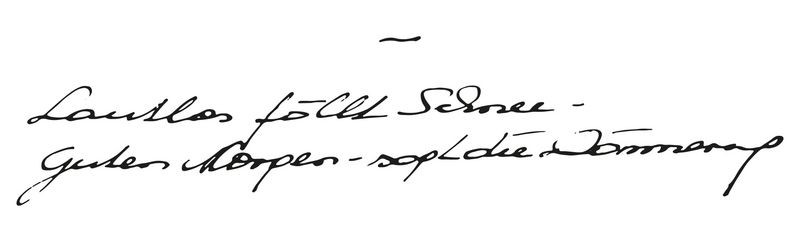 Lautlos fällt Schnee -
Guten Morgen - sagt die Dämmerung